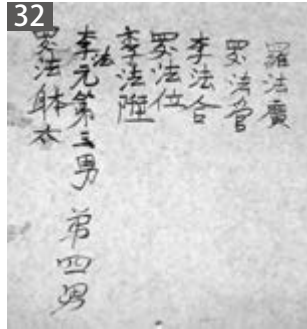 32
羅法廣
罗法官
李法合
罗法位
李法陞
李法元第三男 弟四男
罗法体太